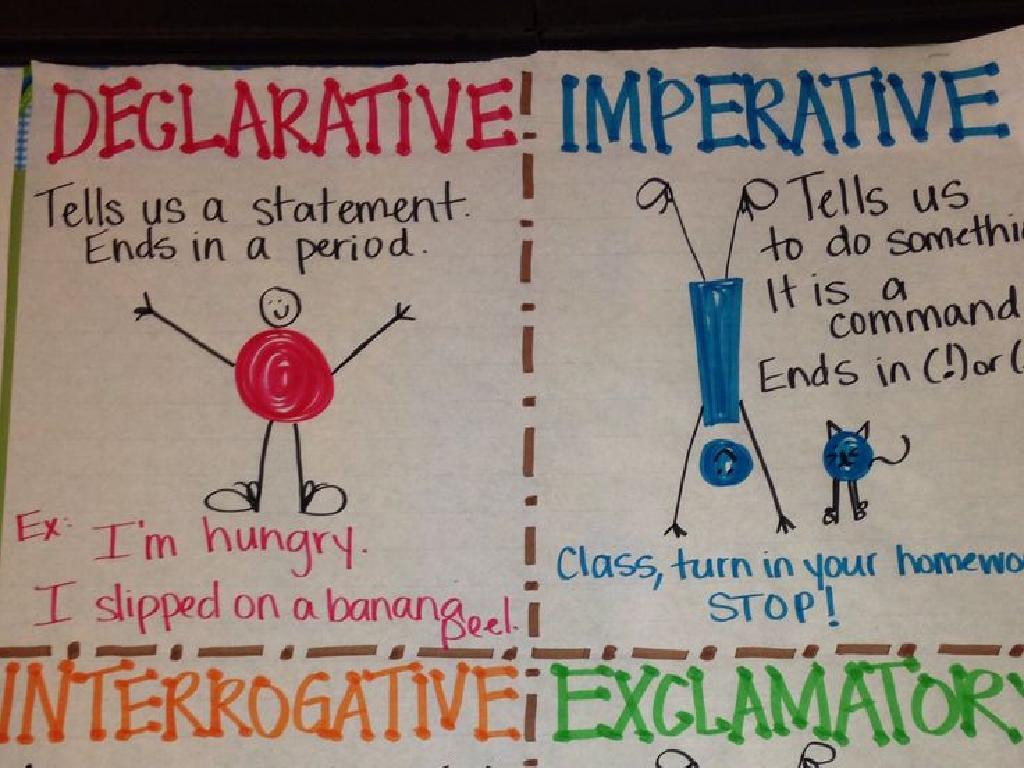 DECLARATIVE
Tells us a statement.
Ends in a period.
Ex: I'm hungry.
I slipped on a banana peel.
IMPERATIVE
Tells us
to do somethi
It is a
command
Ends in (!) or (.
Class, turn in your homewo
STOP!
INTERROGATIVE
EXCLAMATORY